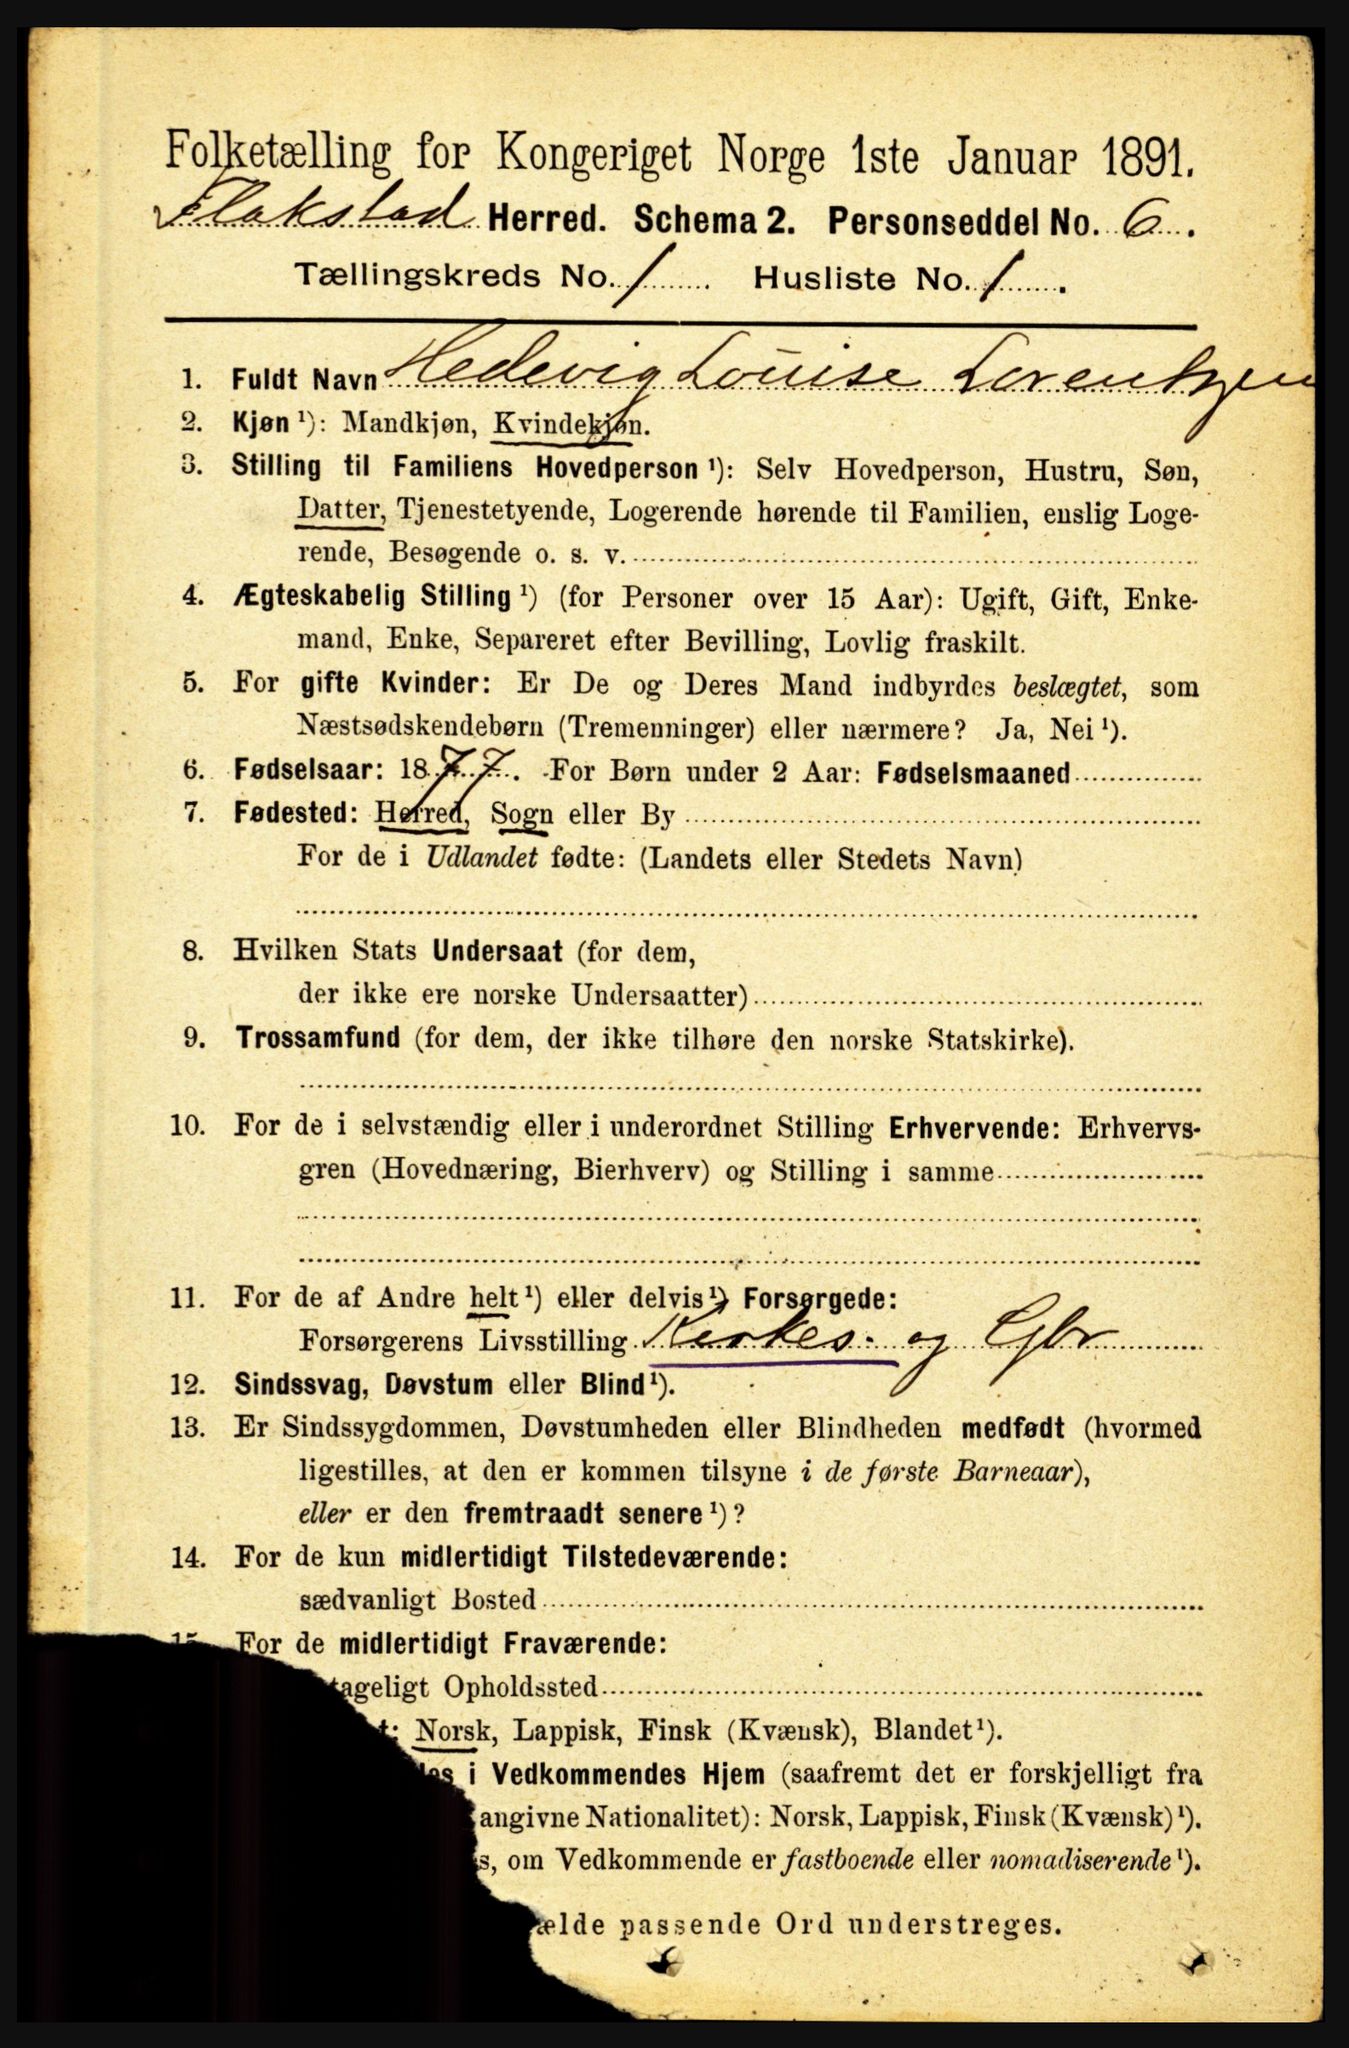 Folketælling for Kongeriget Norge 1ste Januar 1891.
Flakstad Herred. Schema 2. Personseddel No. 6.
Tællingskreds No. 1. Husliste No. 1.
1. Fuldt Navn Hedevig Louise Lorentzen
2. Kjøn ¹): Mandkjøn, Kvindekjøn.
3. Stilling til Familiens Hovedperson ¹): Selv Hovedperson, Hustru, Søn,
Datter, Tjenestetyende, Logerende hørende til Familien, enslig Loge-
rende, Besøgende o. s. v.
4. Ægteskabelig Stilling ¹) (for Personer over 15 Aar): Ugift, Gift, Enke-
mand, Enke, Separeret efter Bevilling, Lovlig fraskilt.
5. For gifte Kvinder: Er De og Deres Mand indbyrdes beslægtet, som
Næstsødskendebørn (Tremenninger) eller nærmere? Ja, Nei ¹).
6. Fødselsaar: 1877. For Børn under 2 Aar: Fødselsmaaned
7. Fødested: Herred, Sogn eller By
For de i Udlandet fødte: (Landets eller Stedets Navn)
8. Hvilken Stats Undersaat (for dem,
der ikke ere norske Undersaatter)
9. Trossamfund (for dem, der ikke tilhøre den norske Statskirke).
10. For de i selvstændig eller i underordnet Stilling Erhvervende: Erhvervs-
gren (Hovednæring, Bierhverv) og Stilling i samme
11. For de af Andre helt ¹) eller delvis ¹) Forsørgede:
Forsørgerens Livsstilling Kirkes. og Gbr
12. Sindssvag, Døvstum eller Blind ¹).
13. Er Sindssygdommen, Døvstumheden eller Blindheden medfødt (hvormed
ligestilles, at den er kommen tilsyne i de første Barneaar),
eller er den fremtraadt senere ¹)?
14. For de kun midlertidigt Tilstedeværende:
sædvanligt Bosted
15. For de midlertidigt Fraværende:
tageligt Opholdssted
t: Norsk, Lappisk, Finsk (Kvænsk), Blandet ¹).
les i Vedkommendes Hjem (saafremt det er forskjelligt fra
angivne Nationalitet): Norsk, Lappisk, Finsk (Kvænsk) ¹).
s, om Vedkommende er fastboende eller nomadiserende ¹).
ælde passende Ord understreges.